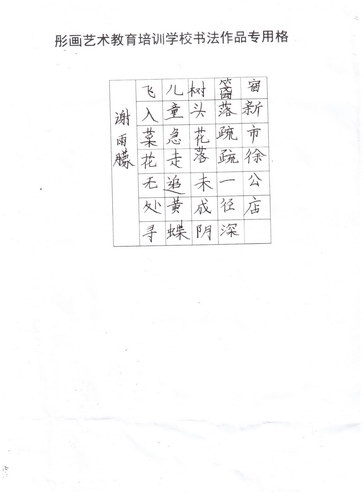 彤画艺术教育培训学校书法作品专用格
宿新市徐公店
篱落疏疏一径深
树头花落未成阴
儿童急走追黄蝶
飞入菜花无处寻
谢雨朦